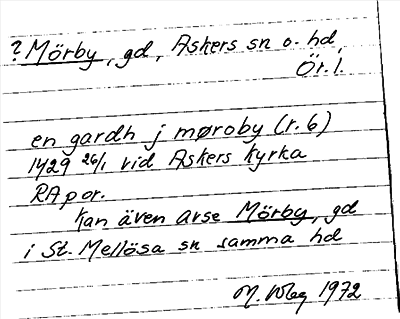 ? Mörby, gd, Askers sn o. hd,
Ör. l.
en gardh j møroby (r. 6)
1429 26/1 vid Askers kyrka
RApor.
Kan även avse Mörby, gd
i St. Mellösa sn samma hd
1972